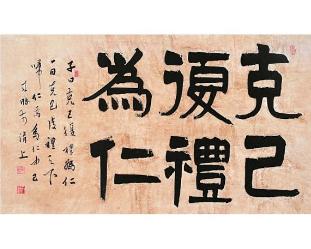 克己
復禮
為仁
子曰克己復禮為仁
一日克己復禮天下
歸仁焉為仁由己